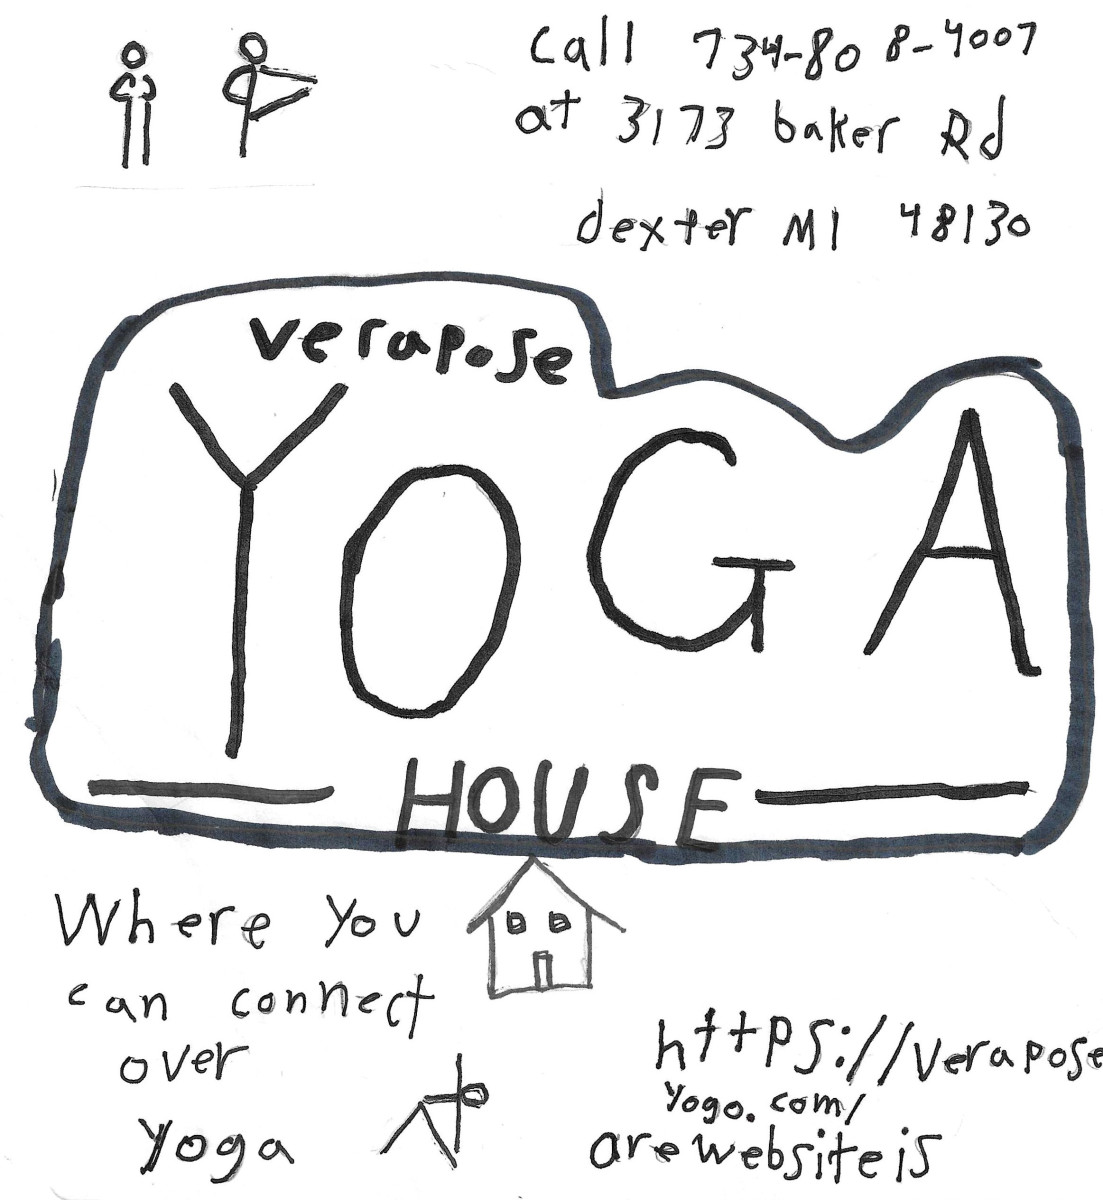 call 734-808-4007
at 3173 baker Rd
dexter MI 48130
verapose
YOGA
HOUSE
Where You
can connect
over
yoga
https://verapose
yogo.com/
are website is